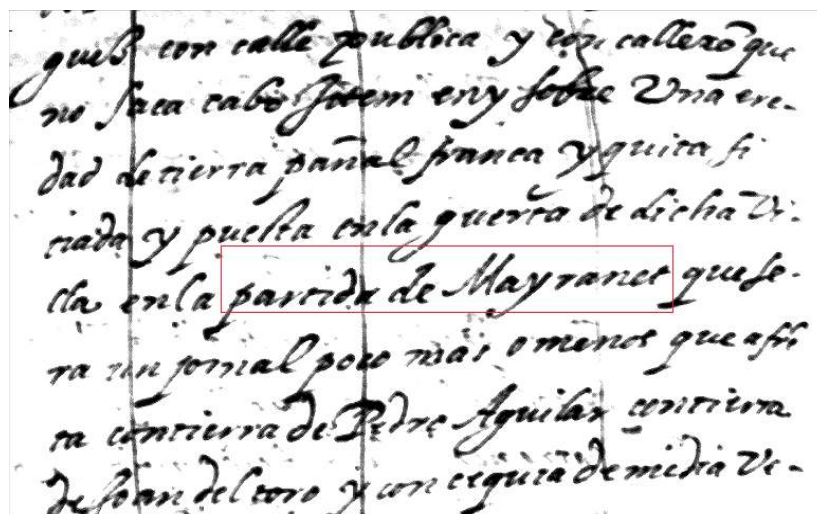 gues con calle publica y con callexõ que
no saca cabo Ittem en y sobre Una ere-
dad de tierra pañal franca y quita si
tiada y puesta en la guerta de dicha Vi-
lla en la partida de Mayranet que se-
ra un jornal poco mas o menos que afrõ
ta con tierra de Pedro Aguilar con tierra
de Joan del toro y con cequia de media Ve-